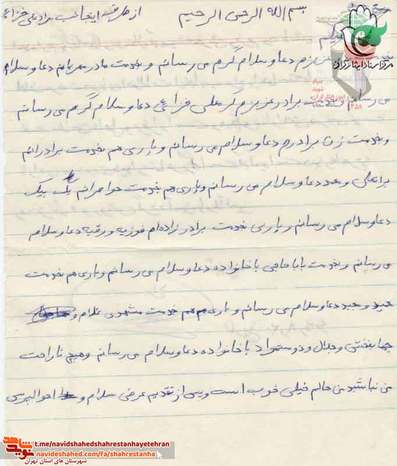 بسم الله الرحمن الرحیم از طرف اینجانب مراد علی خزاعی
عزیزم دعا و سلام گرم می رسانم و خدمت مادر مهربانم دعا و سلام
می رسانم و خدمت برادر عزیزم کرمعلی خزاعی دعا و سلام گرم می رسانم
و بخدمت زن برادرم دعا و سلام می رسانم و باری هم بخدمت برادرانم
دعا و سلام می رسانم و باری هم خدمت خواهرانم یک بیک
دعا و سلام می رسانم و باری خدمت برادر زاده‌ام فوزیه و رقیه دعا و سلام
می رسانم و بخدمت بابا حاجی با خانواده دعا و سلام می رسانم و باری هم خدمت
دعا و سلام می رسانم و باری هم خدمت مشهدی غلام و
جهانبخش و جلال و دوستمراد با خانواده دعا و سلام می رسانم و هیچ ناراحت
من نباشید من حالم خیلی خوب است و پس از تقدیم عرض سلام و احوالپرسی
t.me/navidshahedshahrestanhayetehran
navideshahed.com/fa/shahrestanha
شهرستان های استان تهران